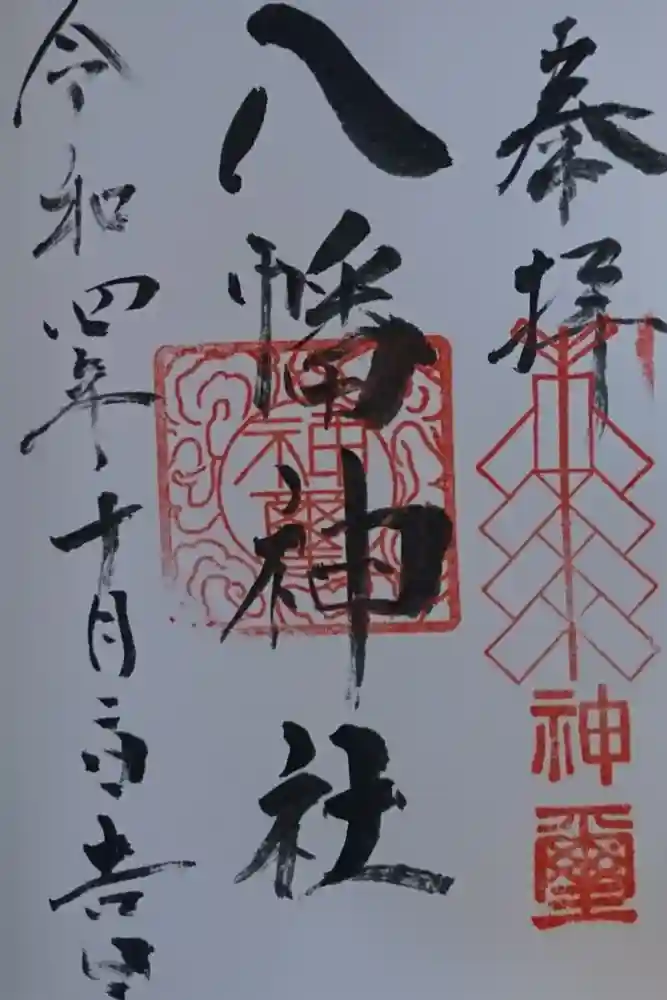 奉拝
神璽
八幡神社
神璽
令和四年十月日吉日